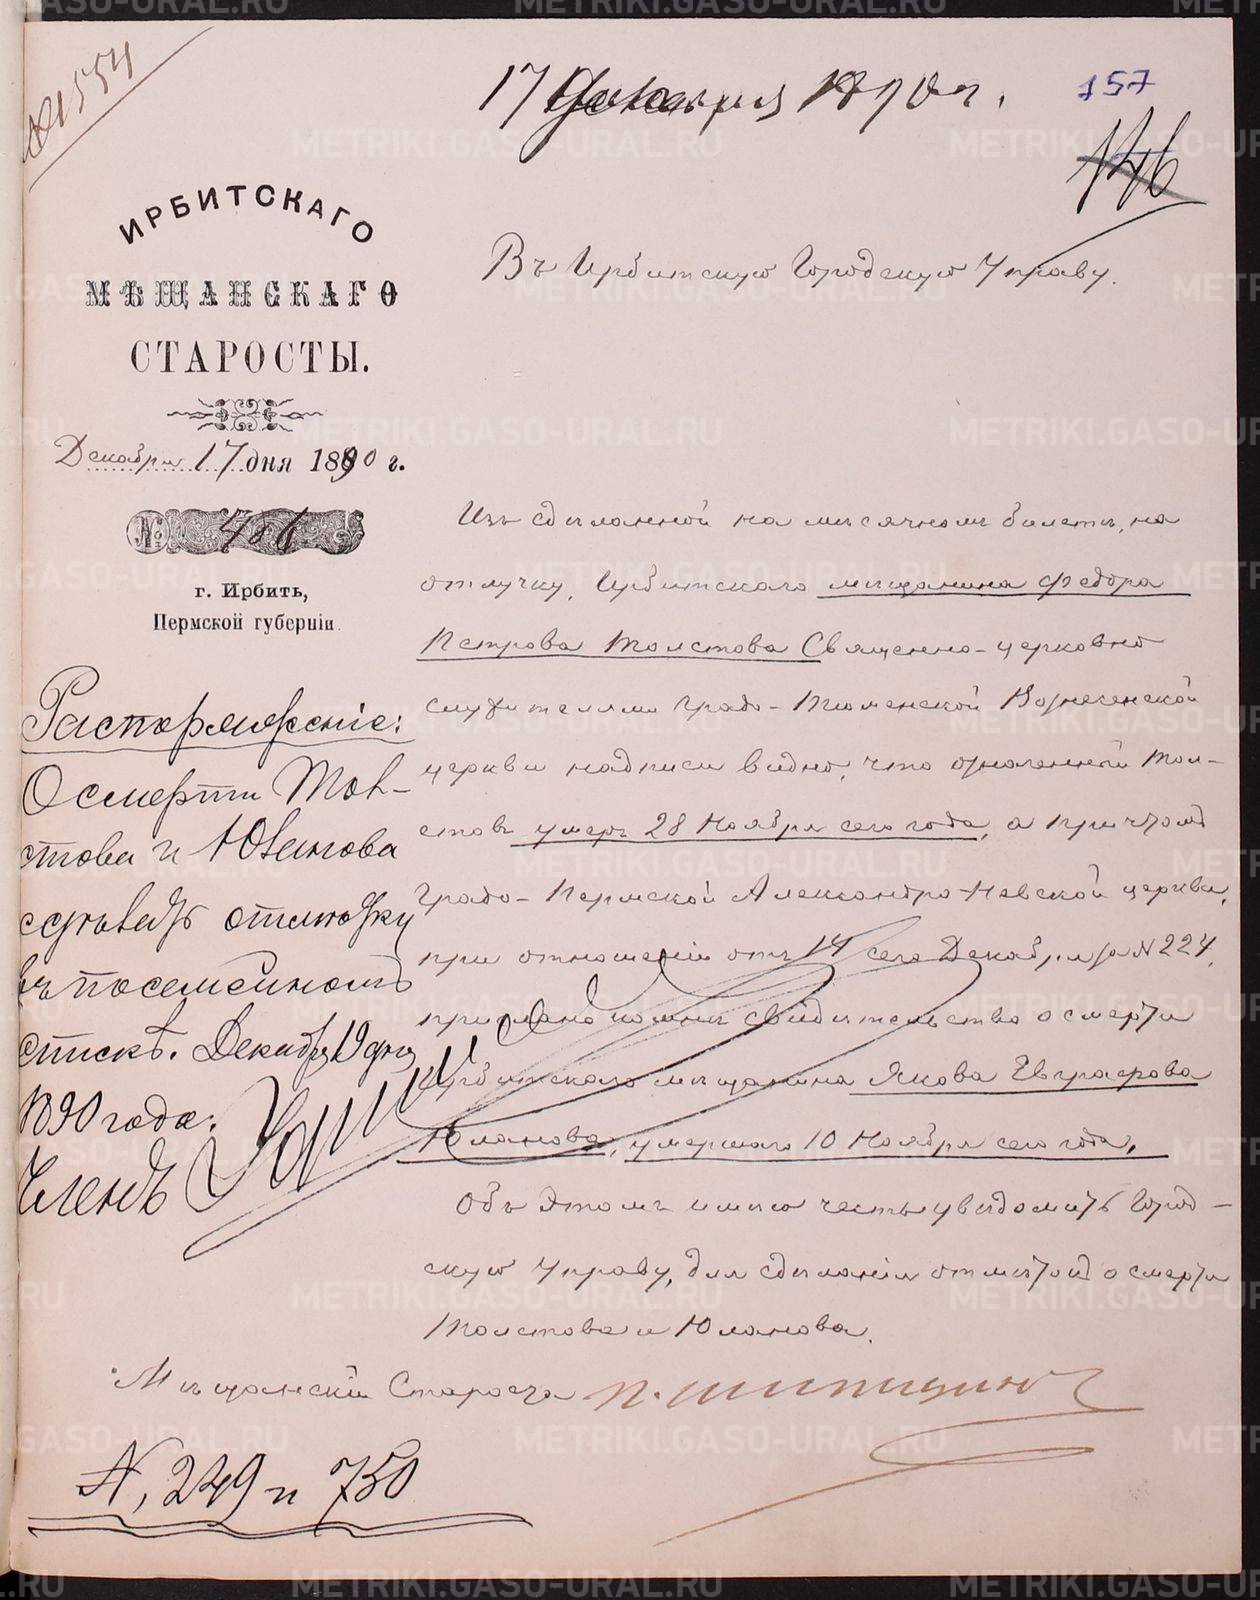 № 1554
17 Декабря 1890 г.
157
146
ИРБИТСКАГО
МѢЩАНСКАГО
СТАРОСТЫ.
Декабря 17 дня 1890 г.
№ 486
г. Ирбить,
Пермской губерніи
Въ Ирбитскую Городскую Управу.
Изъ сдѣланной на мѣсячномъ билетѣ, на
отлучку, Ирбитскаго мѣщанина Федора
Петрова Толстова Священно-церковно
служителями Градо-Тюменской Вознесенской
церкви надписи видно, что означенный Тол-
стовъ умеръ 28 Ноября сего года, а причтомъ
Градо-Пермской Александро-Невской церкви,
при отношеніи отъ 14 сего Декабря за № 224,
прислано ко мнѣ свидѣтельство о смерти
Ирбитскаго мѣщанина Якова Евграфова
Юланова, умершаго 10 Ноября сего года.
Объ этомъ имѣю честь увѣдомить Город-
скую Управу, для сдѣланія отмѣтки о смерти
Толстова и Юланова.
Мѣщанскій Староста П. Шипицинъ
Распоряженіе:
О смерти Тол-
стова и Юланова
сдѣлать отмѣтку
въ посемейномъ
спискѣ. Декабря 19 дня
1890 года.
Членъ
№, 249 и 750
METRIKI.GASO-URAL.RU